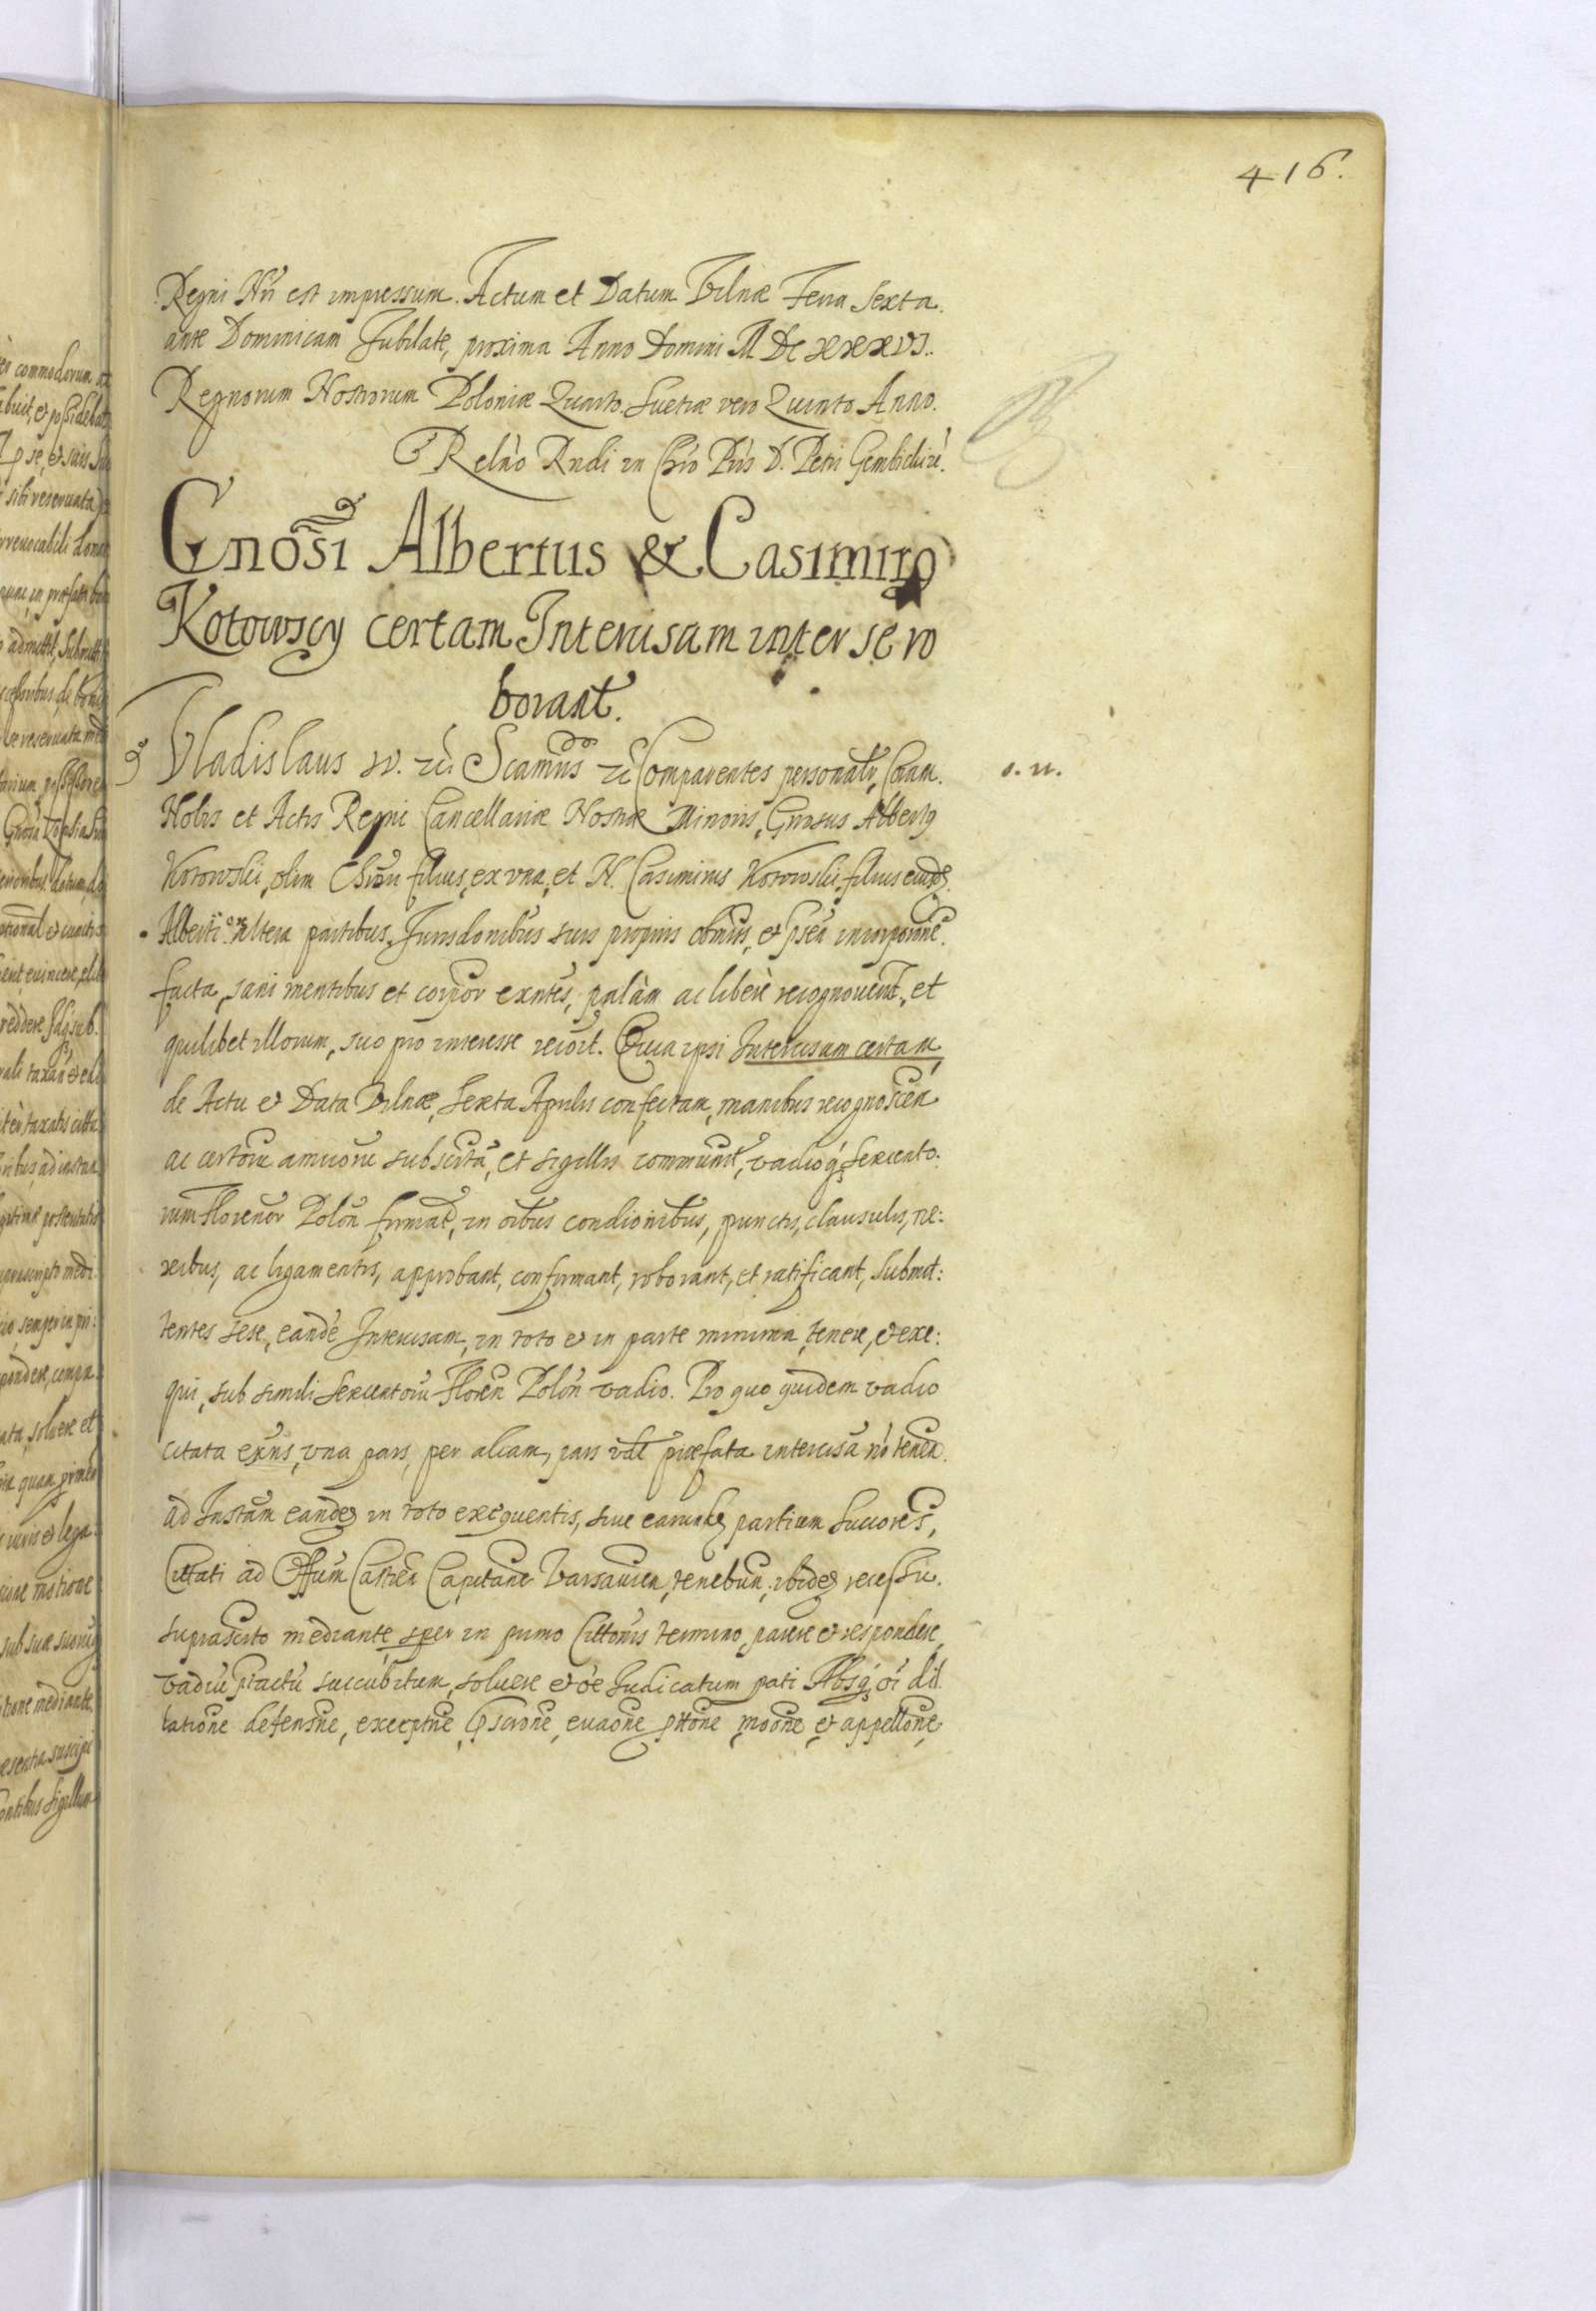 416.
Regni Nri est impressum. Actum et Datum Vilnæ Feria Sexta
ante Dominicam Jubilate, proxima Anno Domini M DC XXXVI.
Regnorum Nostrorum Poloniæ Quarto. Suetiæ vero Quinto Anno.
Relño Rndi in Chro Pris D. Petri Gembicki
Gnosi Albertus & Casimirg
Kotowscy certam Intercisam inter se ro
borant.
Vladislaus IV. Scamus Comparentes personalr, Coram
o. n.
Nobis et Actis Regni Cancellariæ Nostræ Minoris, Gnrosus Albertg
Kotowski, olim filius, ex vna, et N. Casimirus Kotowski filius eiusdē
Alberti ex altera partibus, Jurisdonibus suis proprijs obmiss, et incorporōne
facta, sani mentibus et corpor exntes, palàm ac liberè recognouert, et
quilibet illorum, suo pro interesse recort. Quia ipsi Intercisam certam,
de Actu et Data Vilnæ, Sexta Aprilis confectam, manibus recognoscen
ac certoru amicoru subscrta, et sigillis communit, vadioq Sexcento:
rum Florenor Polon firmat, in oibus condionibus, punctis, clausulis, ne:
xibus, ac ligamentis, approbant, confirmant, roborant, et ratificant, Submit:
tentes sese, eande Intercisam, in toto et in parte minima, tenere, et exe:
qui, sub simili Sexcentoru Floren Polon vadio. Pro quo quidem vadio
citata exns, vna pars, per aliam, pars vdt præfata intercisa nō tenen
ad Instam eandē in toto exequentis, siue earundē partium Succores,
Cittati ad Offum Castren Capitane Varsauien, tenebun, ibidē
suprascrto mediante, sper in primo Cittonis termino, parere et respondere,
vadiū succubitum, soluere et oe Judicatum pati Absq oi dil
latione defensne, exceptne, euaone, moone, et appellone,